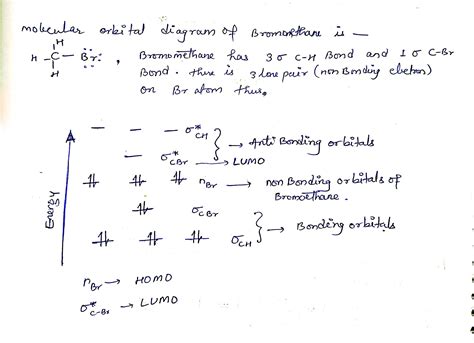 molecular orbital diagram of Bromomethane is —
H
H - C - Br: , Bromomethane has 3 σ C-H Bond and 1 σ C-Br
H
Bond. there is 3 lone pair (non Bonding electron)
on Br atom thus.
σ*CH
→ Anti Bonding orbitals
σ*CBr → LUMO
nBr → non Bonding orbitals of
Bromoethane.
σCBr
→ Bonding orbitals
σCH
Energy
nBr → HOMO
σ*C-Br → LUMO